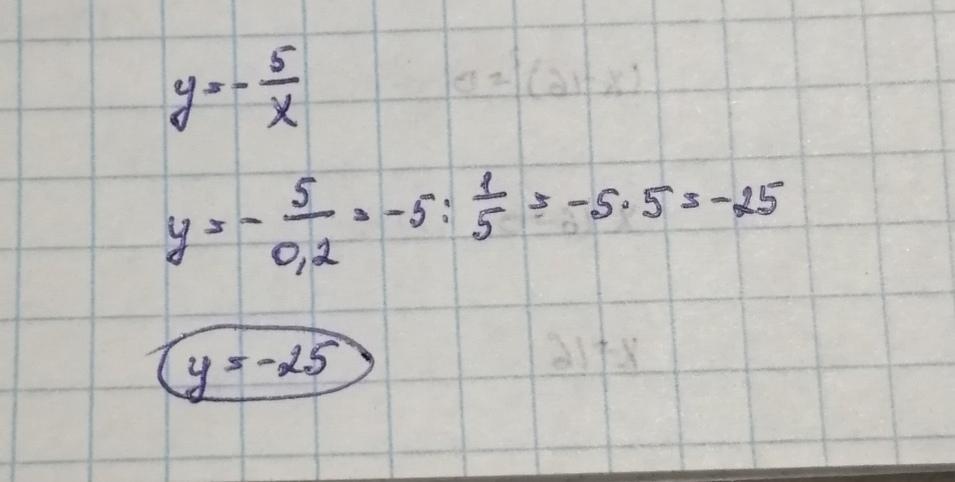 y = - 5/x
y = - 5/0,2 = -5 : 1/5 = -5 · 5 = -25
y = -25